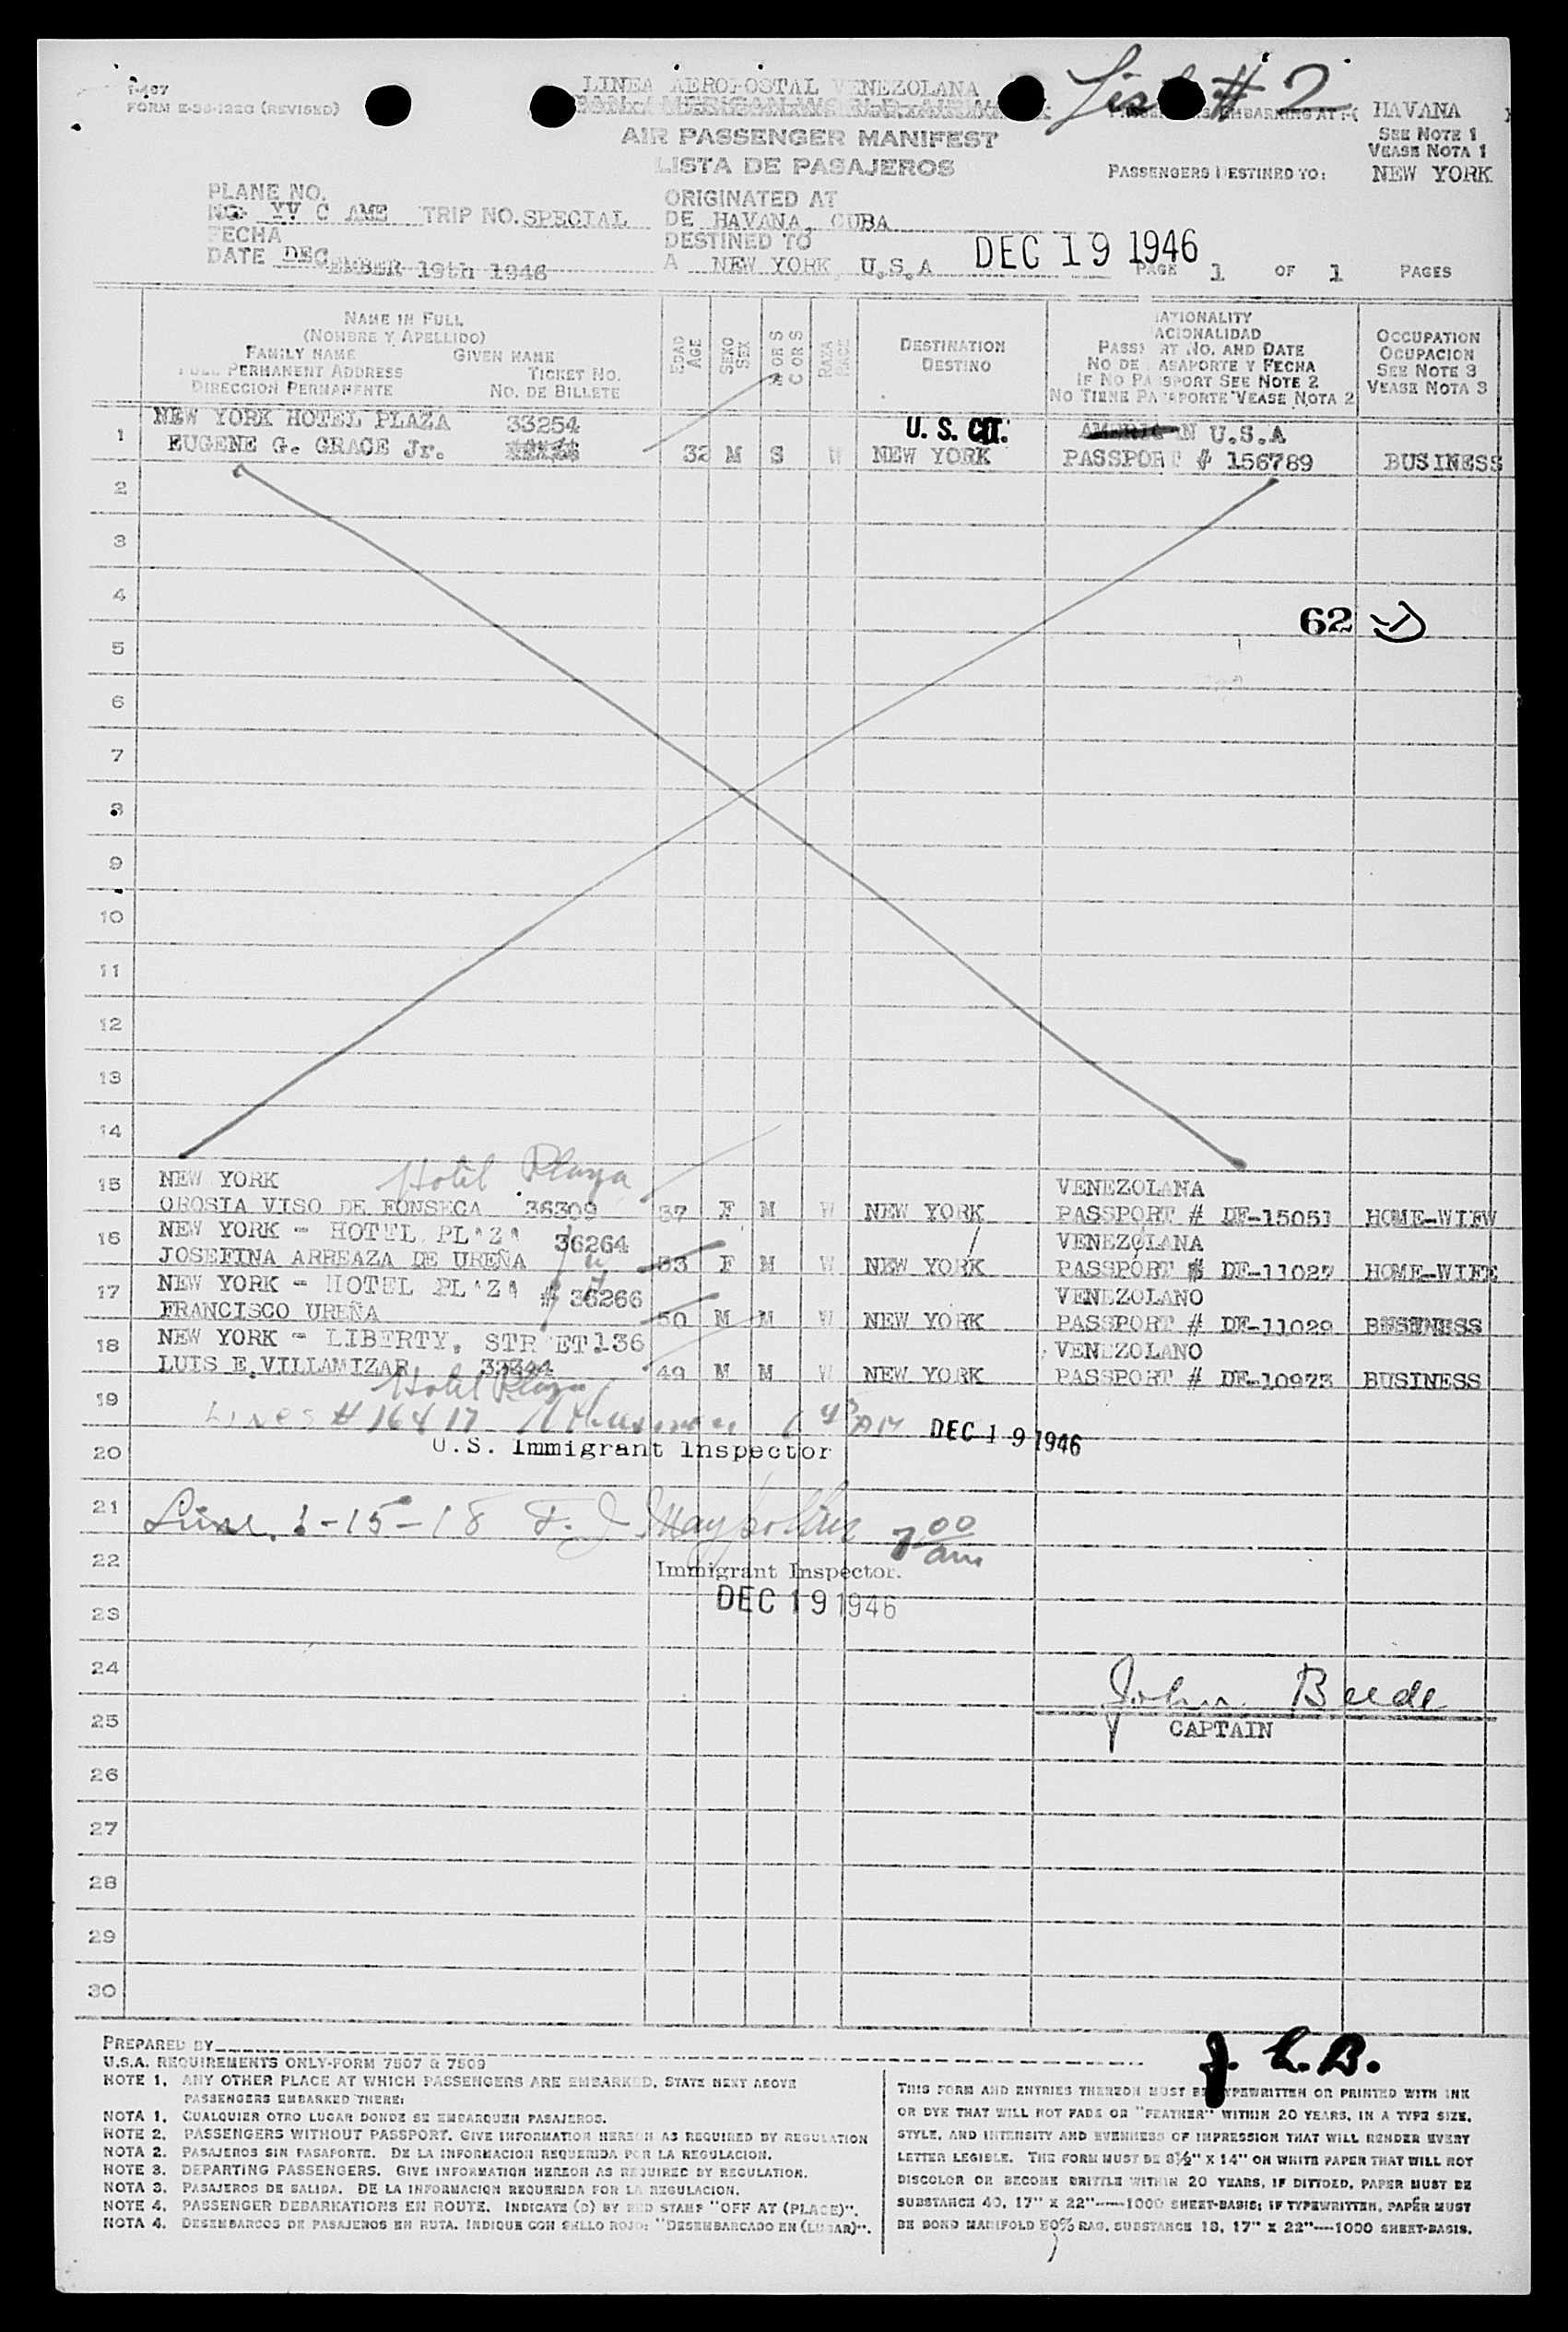 I-467
FORM E-30-122G (REVISED)
LINEA AEROPOSTAL VENEZOLANA
List # 2
AIR PASSENGER MANIFEST
LISTA DE PASAJEROS
HAVANA
SEE NOTE 1
VEASE NOTA 1
PASSENGERS DESTINED TO: NEW YORK
PLANE NO.
NO. YV C AME TRIP NO. SPECIAL
FECHA
DATE DECEMBER 19th 1946
ORIGINATED AT
DE HAVANA, CUBA
DESTINED TO
A NEW YORK, U.S.A
DEC 19 1946
PAGE 1 OF 1 PAGES
NAME IN FULL
(NOMBRE Y APELLIDO)
FAMILY NAME GIVEN NAME
FULL PERMANENT ADDRESS TICKET NO.
DIRECCION PERMANENTE NO. DE BILLETE
EDAD
AGE
SEXO
SEX
M OR S
C OR S
RAZA
RACE
DESTINATION
DESTINO
NATIONALITY
NACIONALIDAD
PASSPORT NO. AND DATE
NO DE PASAPORTE Y FECHA
IF NO PASSPORT SEE NOTE 2
NO TIENE PASAPORTE VEASE NOTA 2
OCCUPATION
OCUPACION
SEE NOTE 3
VEASE NOTA 3
1 NEW YORK HOTEL PLAZA 33254 U. S. CIT. AMERICAN U.S.A
EUGENE G. GRACE Jr. 32 M S W NEW YORK PASSPORT # 156789 BUSINESS
2
3
4
62
5
6
7
8
9
10
11
12
13
14
15 NEW YORK Hotel Plaza VENEZOLANA
OROSIA VISO DE FONSECA 36309 37 F M W NEW YORK PASSPORT # DF-15051 HOME-WIFW
16 NEW YORK - HOTEL PLAZA 36264 VENEZOLANA
JOSEFINA ARREAZA DE UREÑA 33 F M W NEW YORK PASSPORT # DF-11027 HOME-WIFE
17 NEW YORK - HOTEL PLAZA # 36266 VENEZOLANO
FRANCISCO UREÑA 50 M M W NEW YORK PASSPORT # DF-11029 BUSINESS
18 NEW YORK - LIBERTY, STREET 136 VENEZOLANO
LUIS E. VILLAMIZAR 49 M M W NEW YORK PASSPORT # DF-10973 BUSINESS
Hotel Plaza
19 Lines # 16 & 17 AM DEC 19 1946
20 U.S. Immigrant Inspector
21 Line 1-15-18 F. J. 7 00 am
22 Immigrant Inspector.
23 DEC 19 1946
24 John Beede
25 CAPTAIN
26
27
28
29
30
PREPARED BY
J. C. B.
U.S.A. REQUIREMENTS ONLY-FORM 7507 & 7509
NOTE 1. ANY OTHER PLACE AT WHICH PASSENGERS ARE EMBARKED, STATE NEXT ABOVE
PASSENGERS EMBARKED THERE:
NOTA 1. CUALQUIER OTRO LUGAR DONDE SE EMBARQUEN PASAJEROS.
NOTE 2. PASSENGERS WITHOUT PASSPORT. GIVE INFORMATION HEREON AS REQUIRED BY REGULATION
NOTA 2. PASAJEROS SIN PASAPORTE. DE LA INFORMACION REQUERIDA POR LA REGULACION.
NOTE 3. DEPARTING PASSENGERS. GIVE INFORMATION HEREON AS REQUIRED BY REGULATION.
NOTA 3. PASAJEROS DE SALIDA. DE LA INFORMACION REQUERIDA FOR LA REGULACION.
NOTE 4. PASSENGER DEBARKATIONS EN ROUTE. INDICATE (D) BY RED STAMP "OFF AT (PLACE)".
NOTA 4. DESEMBARCOS DE PASAJEROS EN RUTA. INDIQUE CON SELLO ROJO: "DESEMBARCADO EN (LUGAR)".
THIS FORM AND ENTRIES THEREON MUST BE TYPEWRITTEN OR PRINTED WITH INK
OR DYE THAT WILL NOT FADE OR "FEATHER" WITHIN 20 YEARS, IN A TYPE SIZE,
STYLE, AND INTENSITY AND EVENNESS OF IMPRESSION THAT WILL RENDER EVERY
LETTER LEGIBLE. THE FORM MUST BE 8½" X 14" ON WHITE PAPER THAT WILL NOT
DISCOLOR OR BECOME BRITTLE WITHIN 20 YEARS, IF DITTOED, PAPER MUST BE
SUBSTANCE 40, 17" X 22"----1000 SHEET-BASIS; IF TYPEWRITTEN, PAPER MUST
BE BOND MANIFOLD 50% RAG, SUBSTANCE 18, 17" X 22"----1000 SHEET-BASIS.